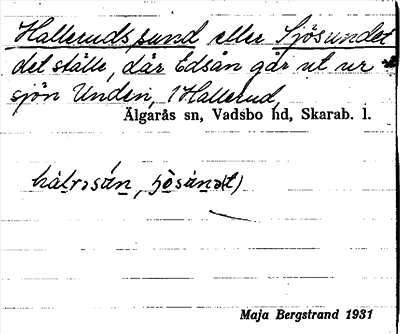 Hallerudssund eller Sjösundet
det ställe, där Edsån går ut ur
sjön Unden, 1 Hallerud,
Älgarås sn, Vadsbo hd, Skarab. l.
Maja Bergstrand 1931